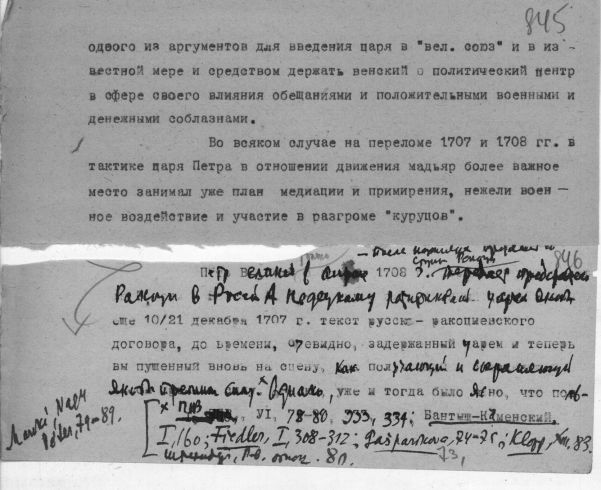 845
одвого из аргументов для введения царя в "вел. союз" и в из -
вестной мере и средством держать венский о политический центр
в сфере своего влияния обещаниями и положительными военными и
денежными соблазнами.
Во всяком случае на переломе 1707 и 1708 гг. в
тактике царя Петра в отношении движения мадьяр более важное
место занимал уже план медиации и примирения, нежели воен —
ное воздействие и участие в разгроме "куруцов".
— После
846
Петр Великий в 1708 г.
в России А. Недецкому
еще 10/21 декабря 1707 г. текст русско- ракоциевского
договора, до времени, очевидно, задержанный царем и теперь
вы пущенный вновь на сцену, как получающий и сохраняющий
Однако, уже и тогда было ясно, что поль-
Márki, Nagy
Péter, 79-89.
VI, 78-80, 333, 334; Бантыш-Каменский,
I, 160; Fiedler, I, 308-312; Gašparikova, 74-75; Klopp, XIII, 83.
73,
80.